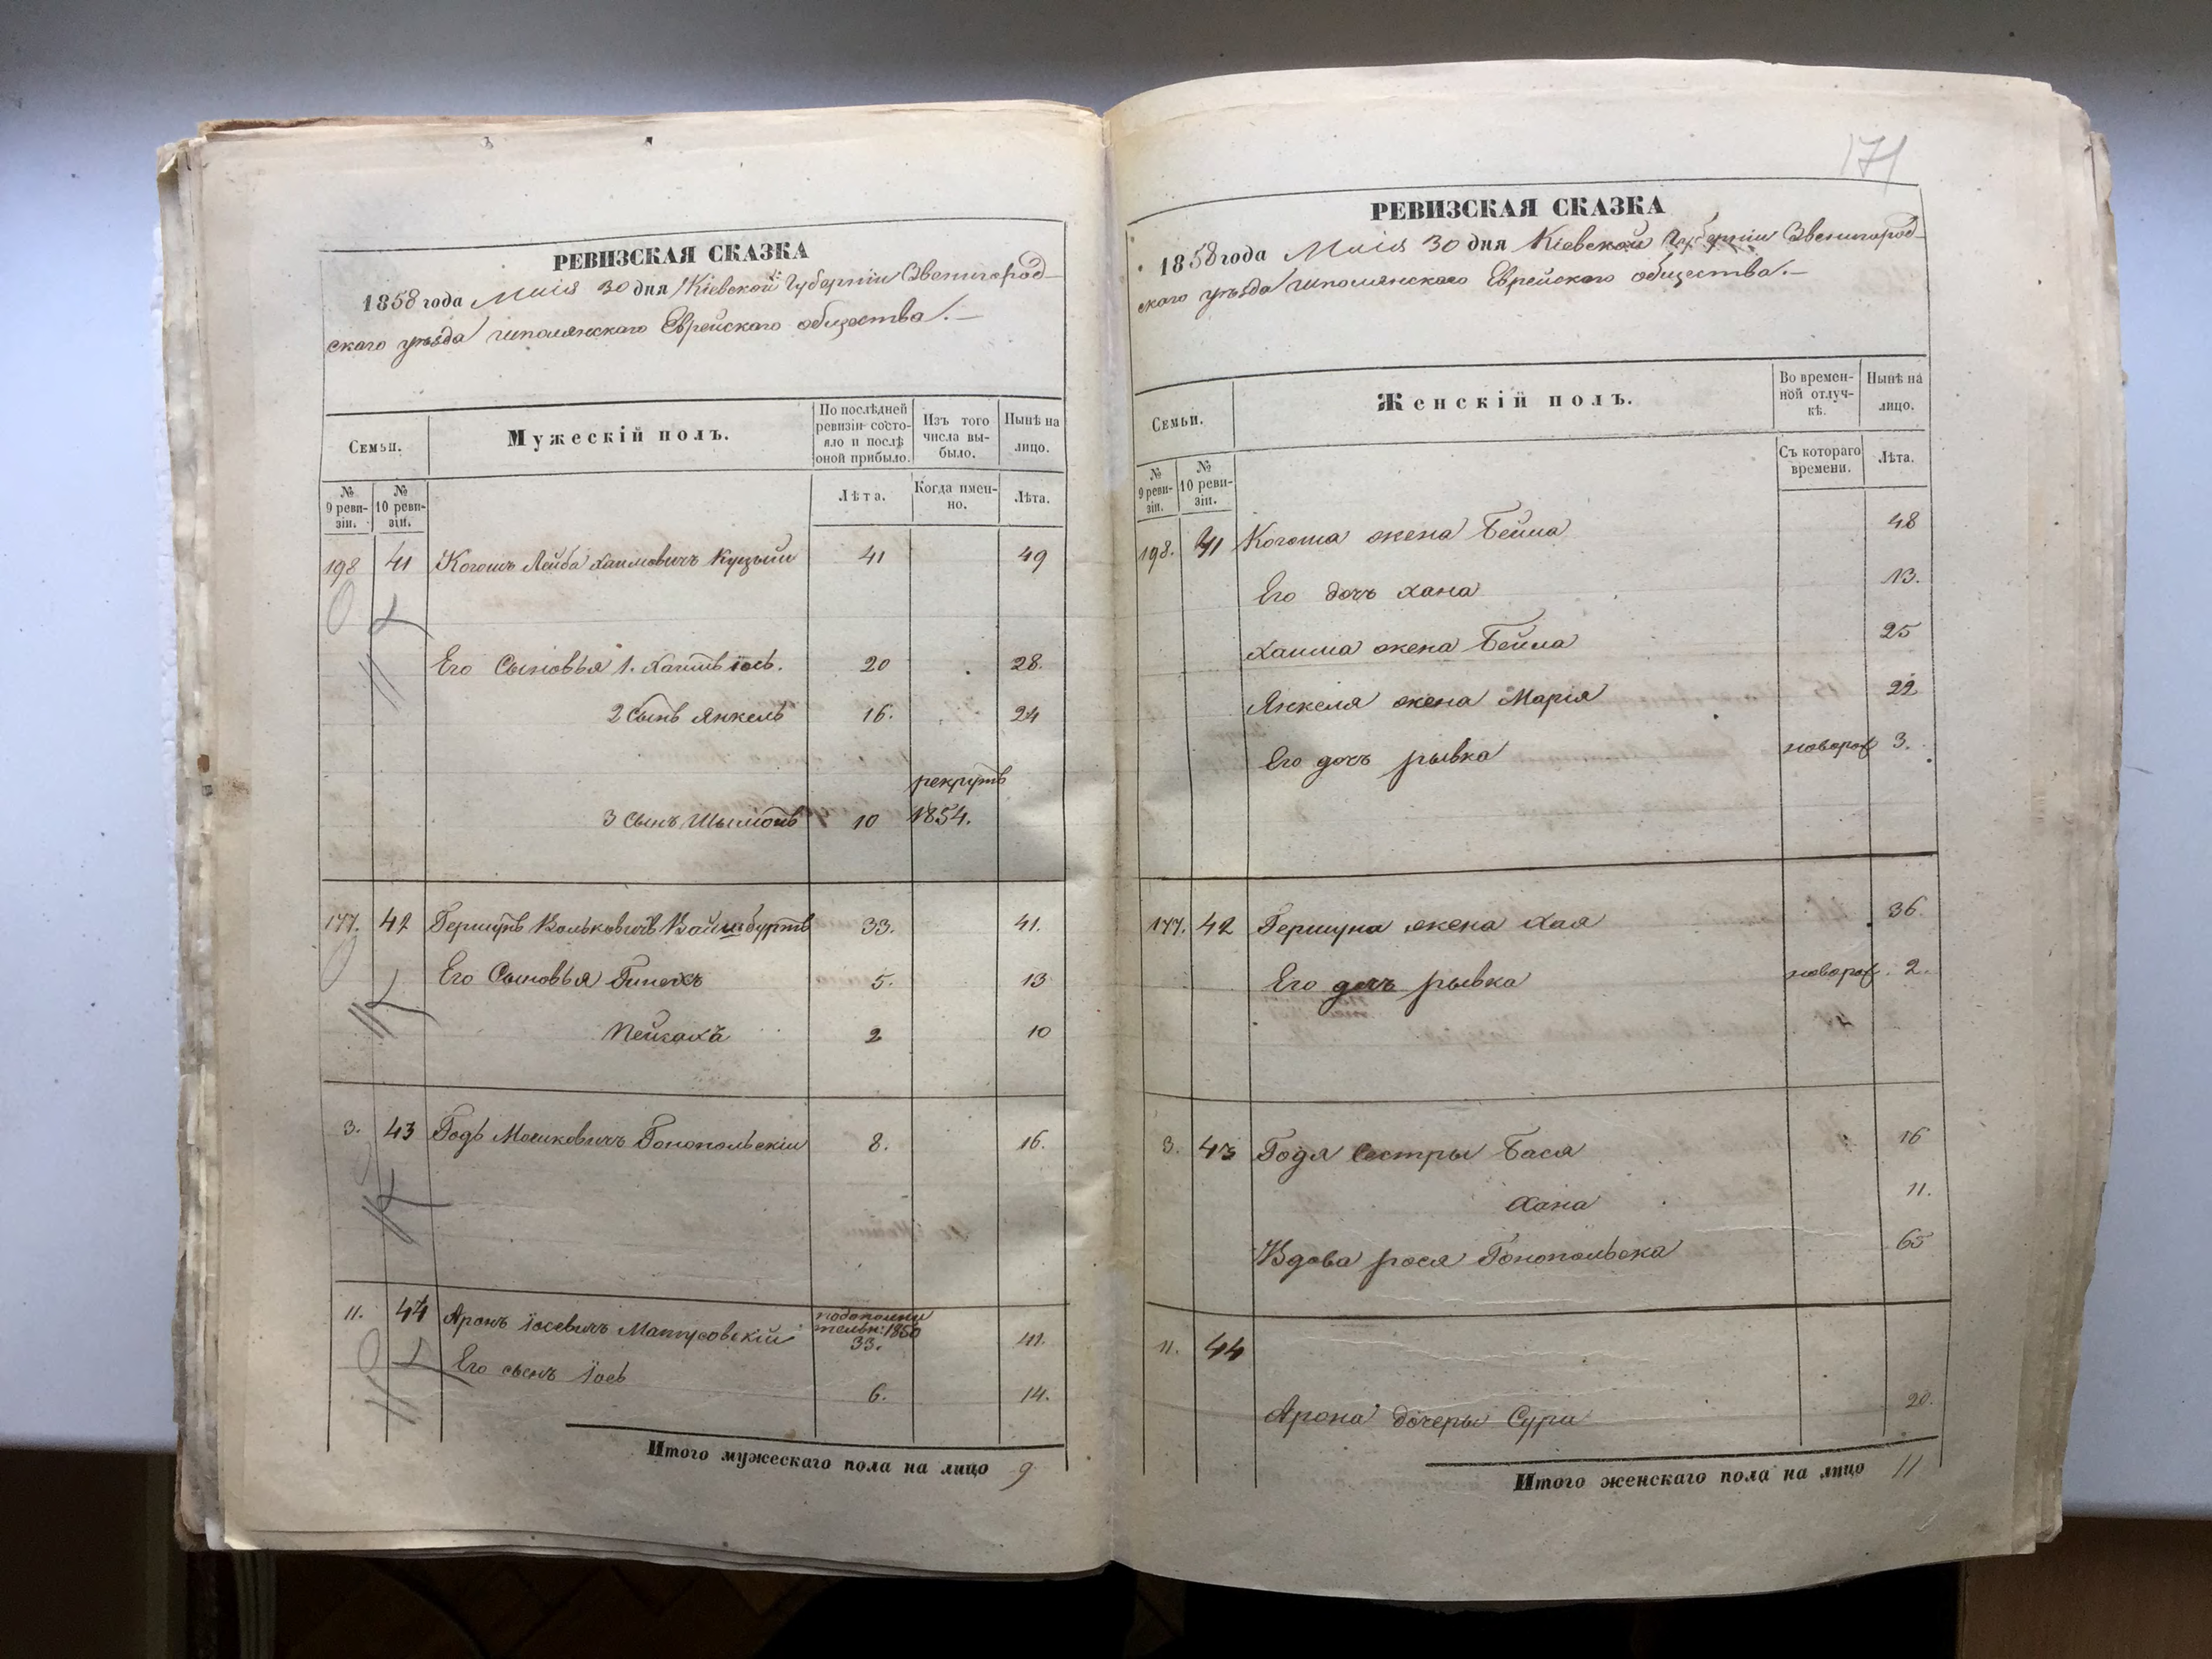 РЕВИЗСКАЯ СКАЗКА
1858 года Маія 30 дня Кіевской Губерніи Звенигород-
скаго уѣзда Шполянскаго Еврейскаго общества.-
Семьи.
Мужескій полъ.
По послѣдней ревизіи состо-
яло и послѣ оной прибыло.
Изъ того числа вы-
было.
Нынѣ на лицо.
№ 9 реви-
зіи.
№ 10 реви-
зіи.
Лѣта.
Когда имен-
но.
Лѣта.
198 41 Лейба Хаимовичъ 41 49
Его Сыновья 1. Хаимъ іось. 20 28.
2 Сынъ Янкель 16. 24
рекрутъ
3 сынъ Шыліомъ 10 1854.
177. 42 Гершунъ Вольковичъ Вайшбуртъ 33. 41.
Его Сыновья 5. 13
Пейсахъ 2 10
3. 43 Годь Мошковичъ Гонопольскій 8. 16.
11. 44 Аронъ Іосевичъ Матусовскій 33. 41.
1850
Его сынъ Іось 6. 14.
Итого мужескаго пола на лицо 9
171
РЕВИЗСКАЯ СКАЗКА
1858 года Маія 30 дня Кіевской Губерніи Звенигород-
скаго уѣзда Шполянскаго Еврейскаго общества.-
Семьи.
Женскій полъ.
Во времен-
ной отлуч-
кѣ.
Нынѣ на лицо.
№ 9 реви-
зіи.
№ 10 реви-
зіи.
Съ котораго времени.
Лѣта.
198. 41 жена Бейла 48
Его дочь Хана 13.
Хаима жена Бейла 25
Янкеля жена Марія 22
Его дочь рывка новорож 3.
177. 42 Гершуна жена Хая 36.
Его дочь рывка новорож. 2.
3. 43 Годя Сестры Бася 16
Хана 11.
Вдова рося Гонопольска 65
11. 44
Арона дочеры Сура 20.
Итого женскаго пола на лицо 11